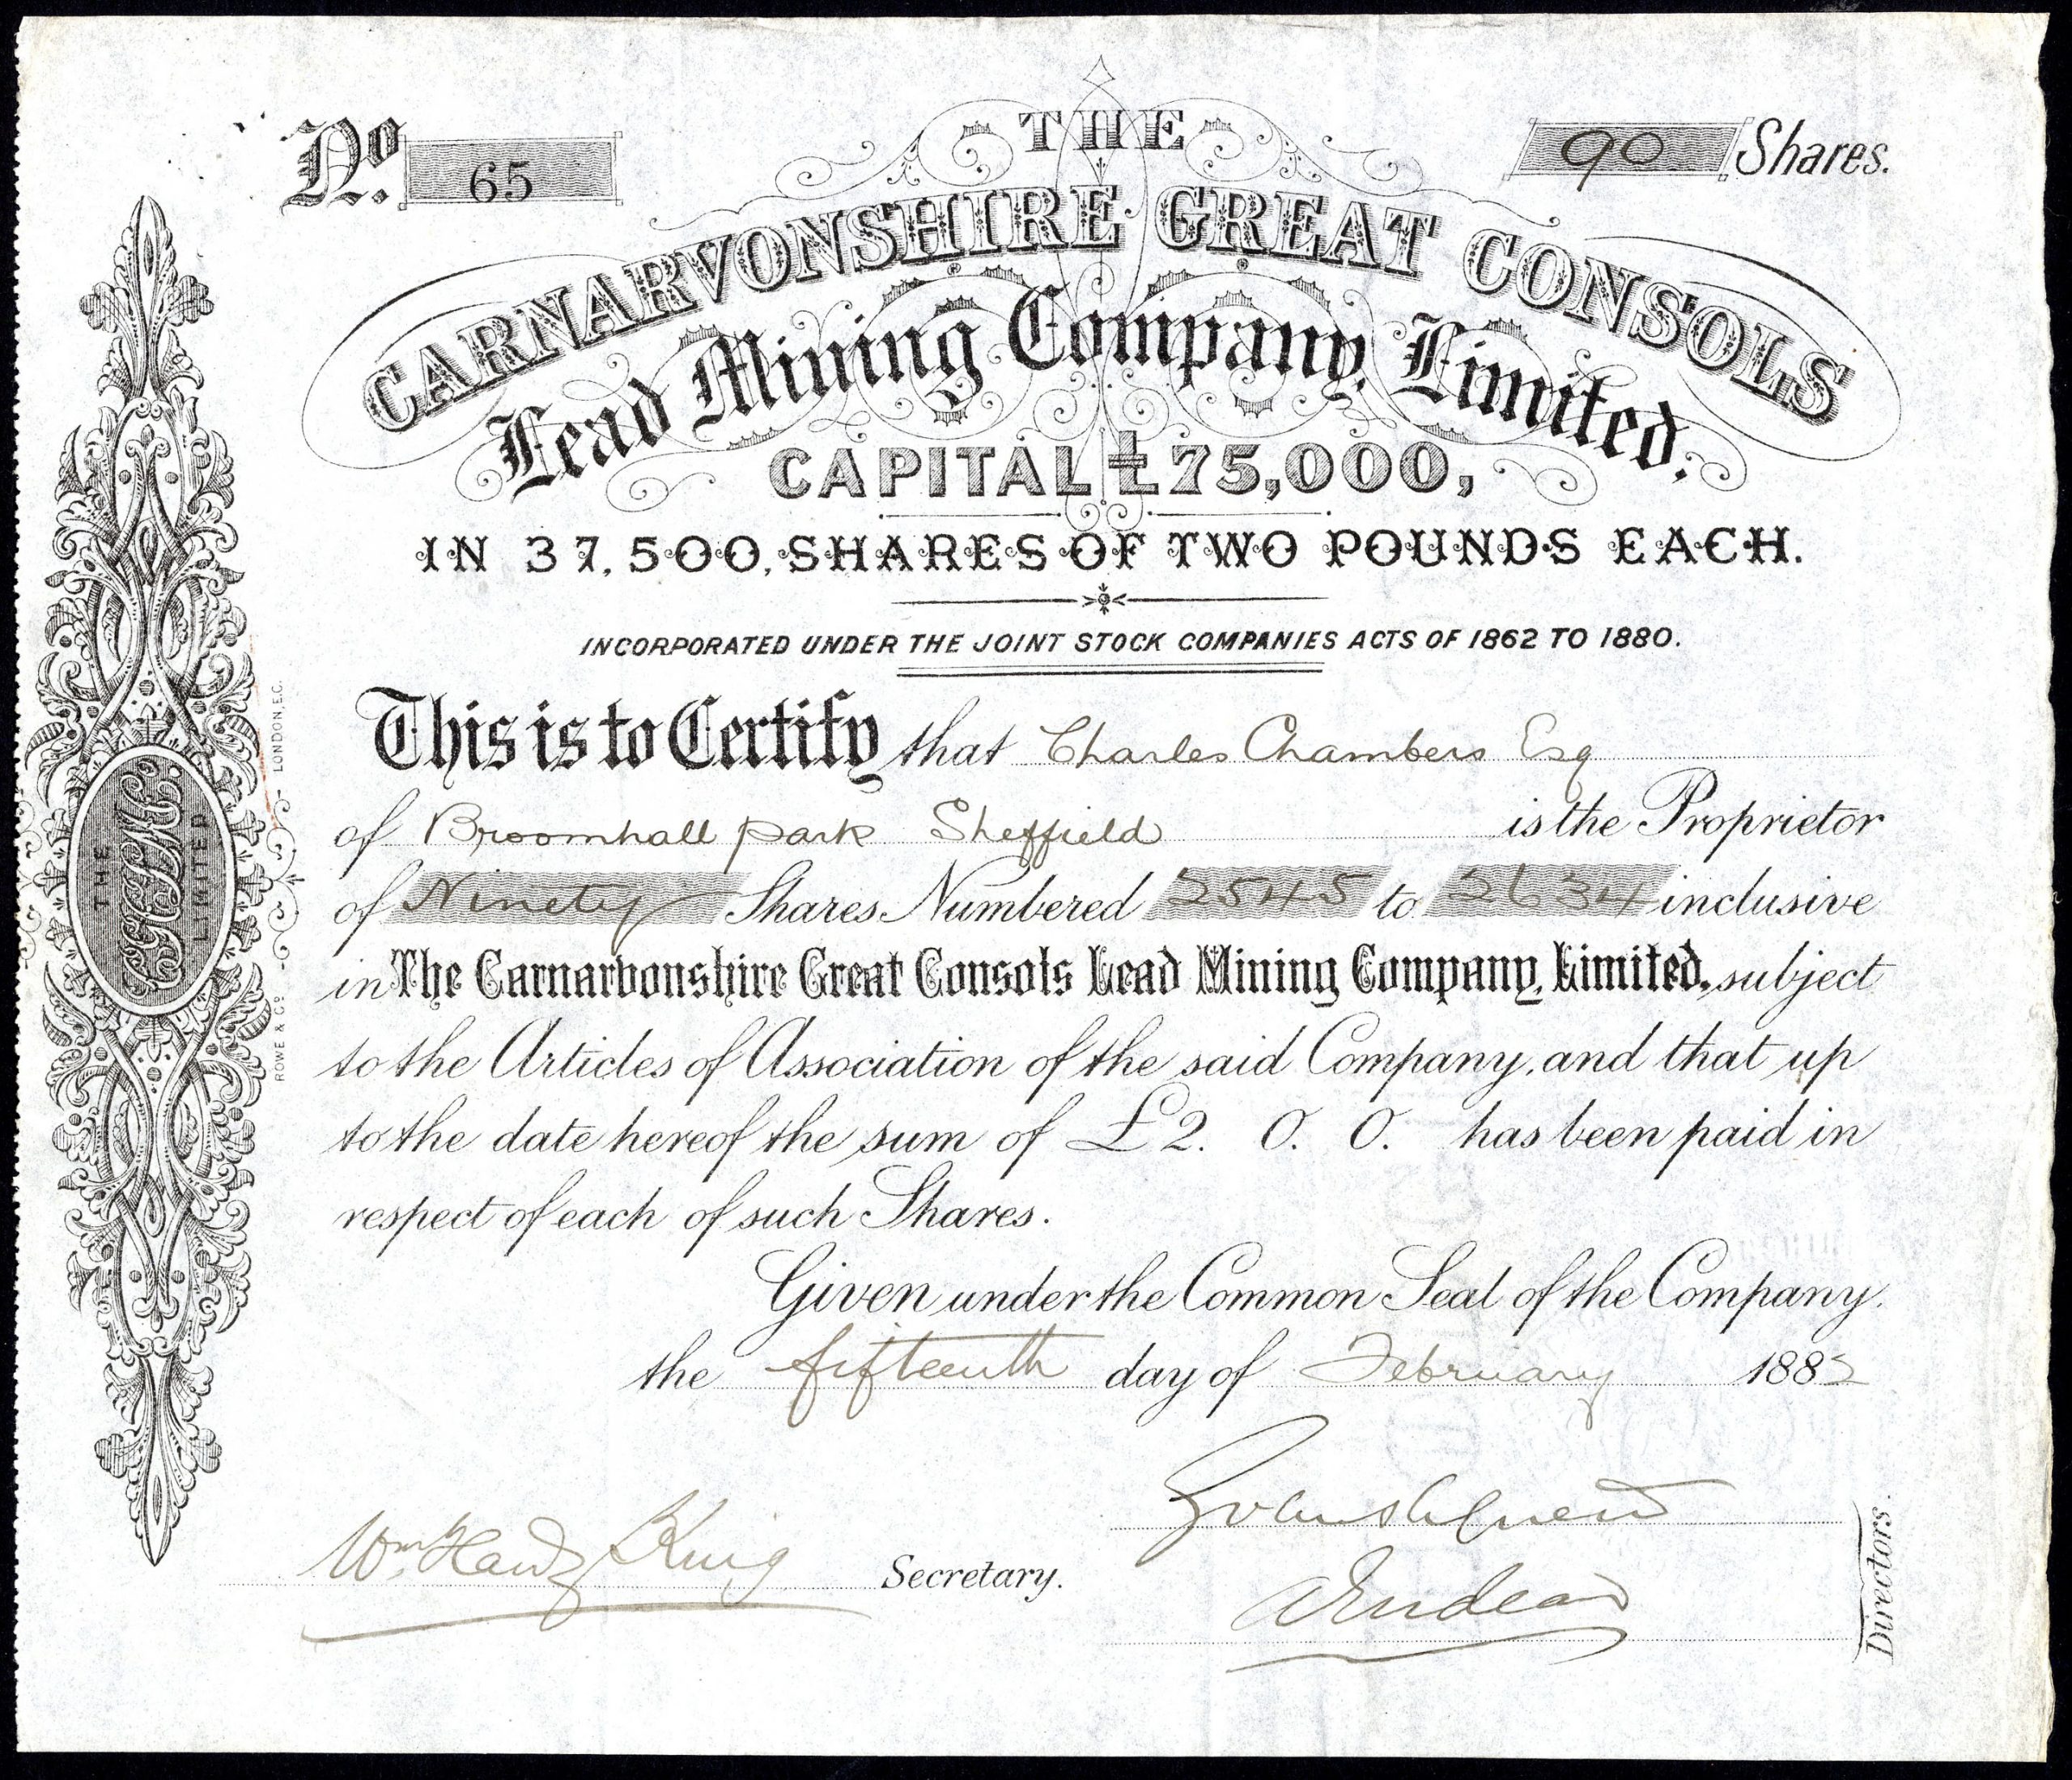 No. 65
90 Shares.
THE
CARNARVONSHIRE GREAT CONSOLS
Lead Mining Company, Limited.
CAPITAL £75,000,
IN 37,500, SHARES OF TWO POUNDS EACH.
INCORPORATED UNDER THE JOINT STOCK COMPANIES ACTS OF 1862 TO 1880.
This is to Certify that Charles Chambers Esq
of Broomhall Park Sheffield is the Proprietor
of Ninety Shares Numbered 2545 to 2634 inclusive
in The Carnarvonshire Great Consols Lead Mining Company, Limited, subject
to the Articles of Association of the said Company, and that up
to the date hereof the sum of £2. 0. 0. has been paid in
respect of each of such Shares.
Given under the Common Seal of the Company.
the fifteenth day of February 1882
Wm. King Secretary.
Directors.
THE
LIMITED
ROWE & Co. LONDON, E.C.